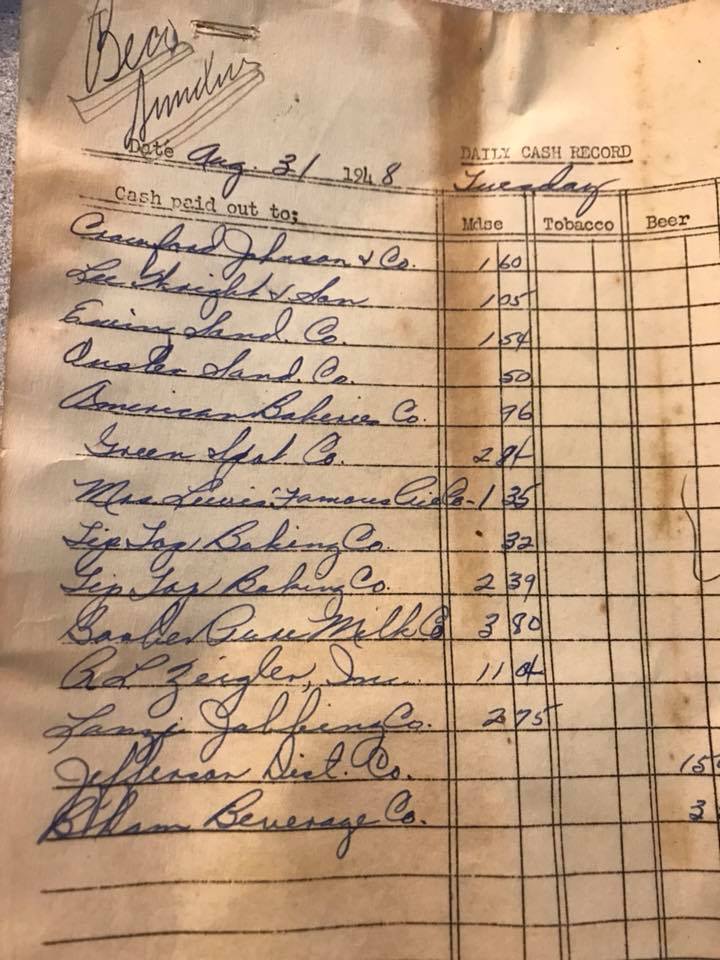 Date Aug. 31 1948 DAILY CASH RECORD
Tuesday
Cash paid out to; Mdse Tobacco Beer
Crawford Johnson & Co. 1 60
Lee Wright & Son 1 05
Ewin Sand. Co. 1 54
Sand. Co. 50
American Bakeries Co. 96
Green Spot Co. 2
Mrs Lewis' Famous Pie Co- 1 35
Tip Top Baking Co. 32
Tip Top Baking Co. 2 39
Barber Pure Milk Co 3 80
R L Zeigler, Inc. 11
Jobbing Co. 2 75
Jefferson Dist. Co. 15
B'ham Beverage Co. 3